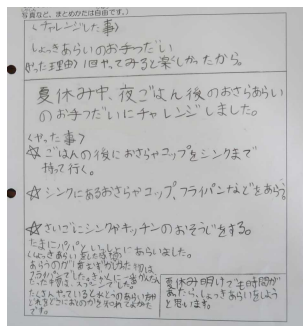 写真など、まとめかたは自由です。)
〈チャレンジした事〉
しょっきあらいのお手つだい
やった理由〉1回やってみると楽しかったから。
夏休み中、夜ごはん後のおさらあらい
のお手つだいにチャレンジしました。
〈やった事〉
☆ごはんの後におさらやコップをシンクまで
持って行く。
☆シンクにあるおさらやコップ、フライパンなどをあらう
☆さいごにシンクやキッチンのおそうじをする。
たまにパパといっしょにあらいました。
しょっきあらいをした感想
フライパン
たくさん
夏休み明けても時間が
あったら、しょっきあらいをしよう
と思います。